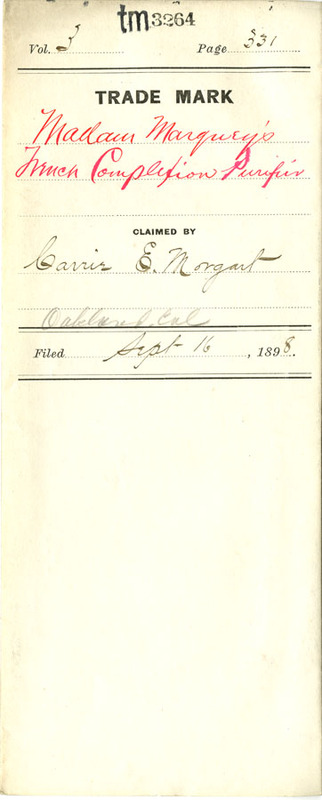 tm3264
Vol. 3 Page 331
TRADE MARK
Madam Marquey's
French Complexion Purifir
CLAIMED BY
Carrie E. Morgart
Oakland, Cal
Filed Sept 16, 1898.